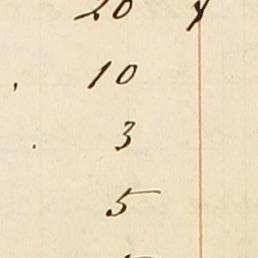 20
10
3
5